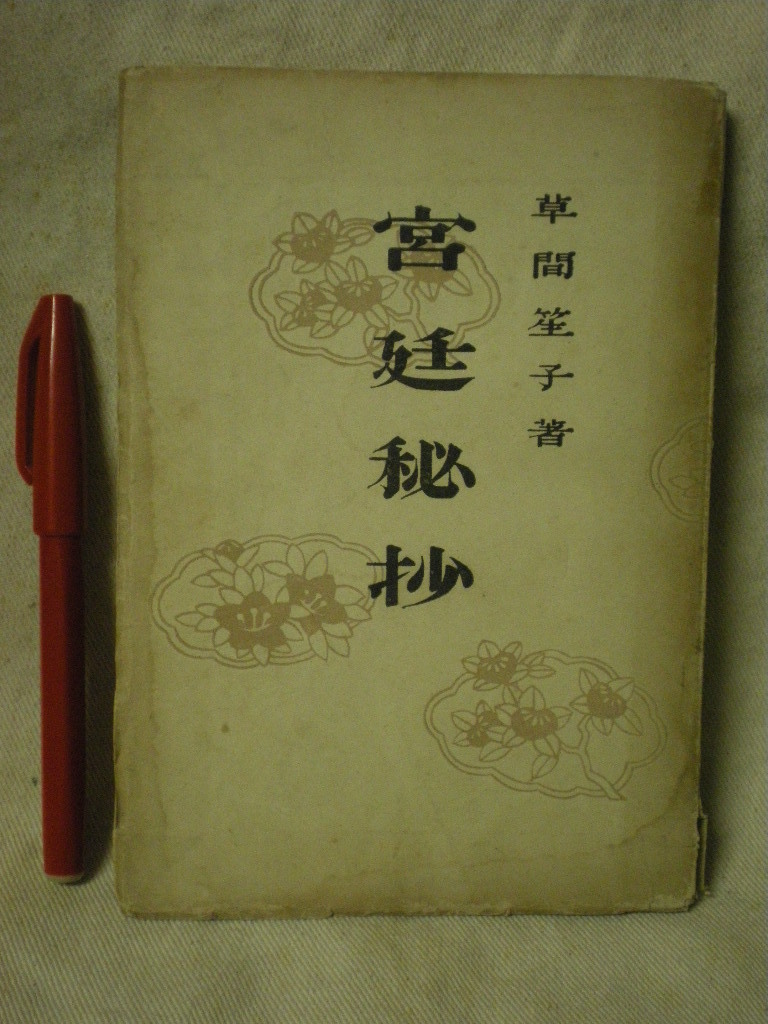 草間笙子著
宮廷秘抄